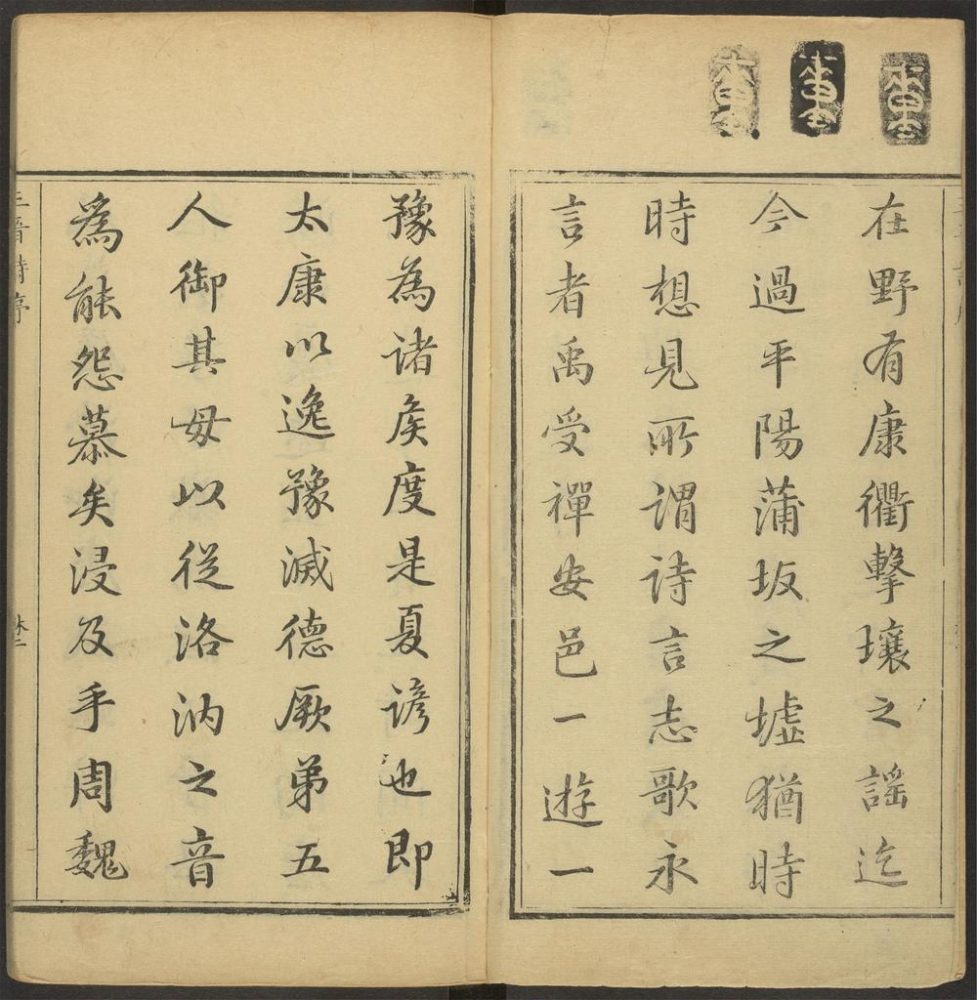 在野有康衢擊壤之謡迄
今過平陽蒲坂之墟猶時
時想見所謂詩言志歌永
言者禹受禪安邑一遊一
豫為諸矦度是夏諺也即
太康以逸豫滅德厥弟五
人御其母以從洛汭之音
為能怨慕矣浸及乎周魏